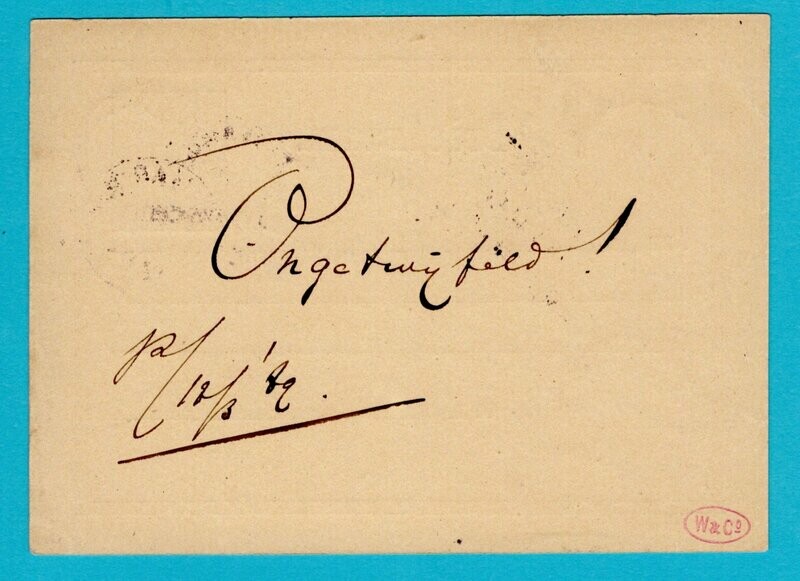 Ongetwijfeld!
12/3 '89.
W&Co